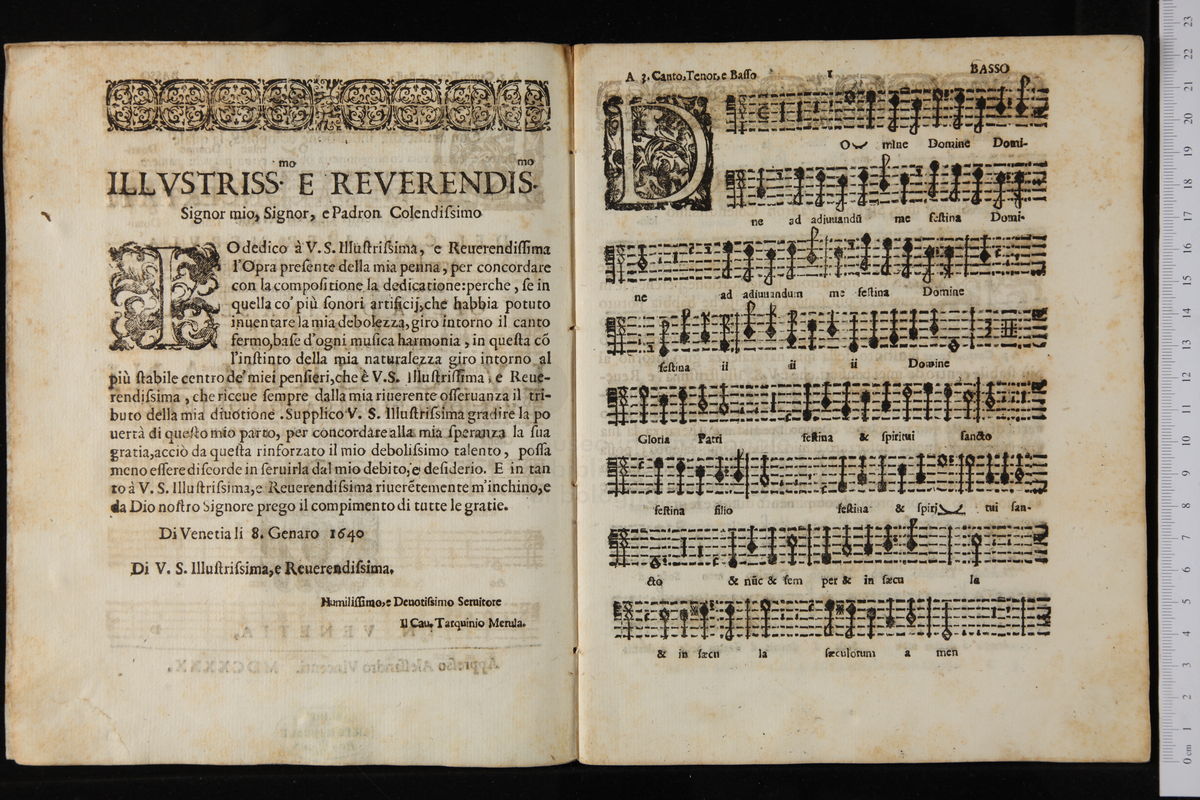 ILLVSTRISS.mo E REVERENDIS.mo
Signor mio, Signor, e Padron Colendiſsimo
IO dedico à V. S. Illuſtriſsima, e Reuerendiſſima
l'Opra preſente della mia penna, per concordare
con la compoſitione la dedicatione: perche, ſe in
quella co' più ſonori artificij, che habbia potuto
inuentare la mia debolezza, giro intorno il canto
fermo, baſe d'ogni muſica harmonia, in queſta cõ
l'inſtinto della mia naturalezza giro intorno al
più ſtabile centro de' miei penſieri, che è V.S. Illuſtriſſima, e Reue-
rendiſsima, che riceue ſempre dalla mia riuerente oſſeruanza il tri-
buto della mia diuotione. Supplico V. S. Illuſtriſsima gradire la po
uertà di queſto mio parto, per concordare alla mia ſperanza la ſua
gratia, acciò da queſta rinforzato il mio deboliſsimo talento, poſſa
meno eſſere diſcorde in ſeruirla dal mio debito, e deſiderio. E in tan
to à V. S. Illuſtriſsima, e Reuerendiſsima riuerẽtemente m'inchino, e
da Dio noſtro Signore prego il compimento di tutte le gratie.
Di Venetia li 8. Genaro 1640
Di V. S. Illuſtriſsima, e Reuerendiſsima.
Humiliſſimo, e Deuotiſsimo Seruitore
Il Cau. Tarquinio Merula.
A 3. Canto, Tenor, e Baſſo 1 BASSO
DO mine Domine Domi-
ne ad adiuuandũ me feſtina Domi-
ne ad adiuuandum me feſtina Domine
feſtina ii ii ii Domine
Gloria Patri feſtina & ſpiritui ſancto
feſtina filio feſtina & ſpiri tui ſan-
cto & nũc & ſem per & in ſæcu la
& in ſæcu la ſæculorum a men